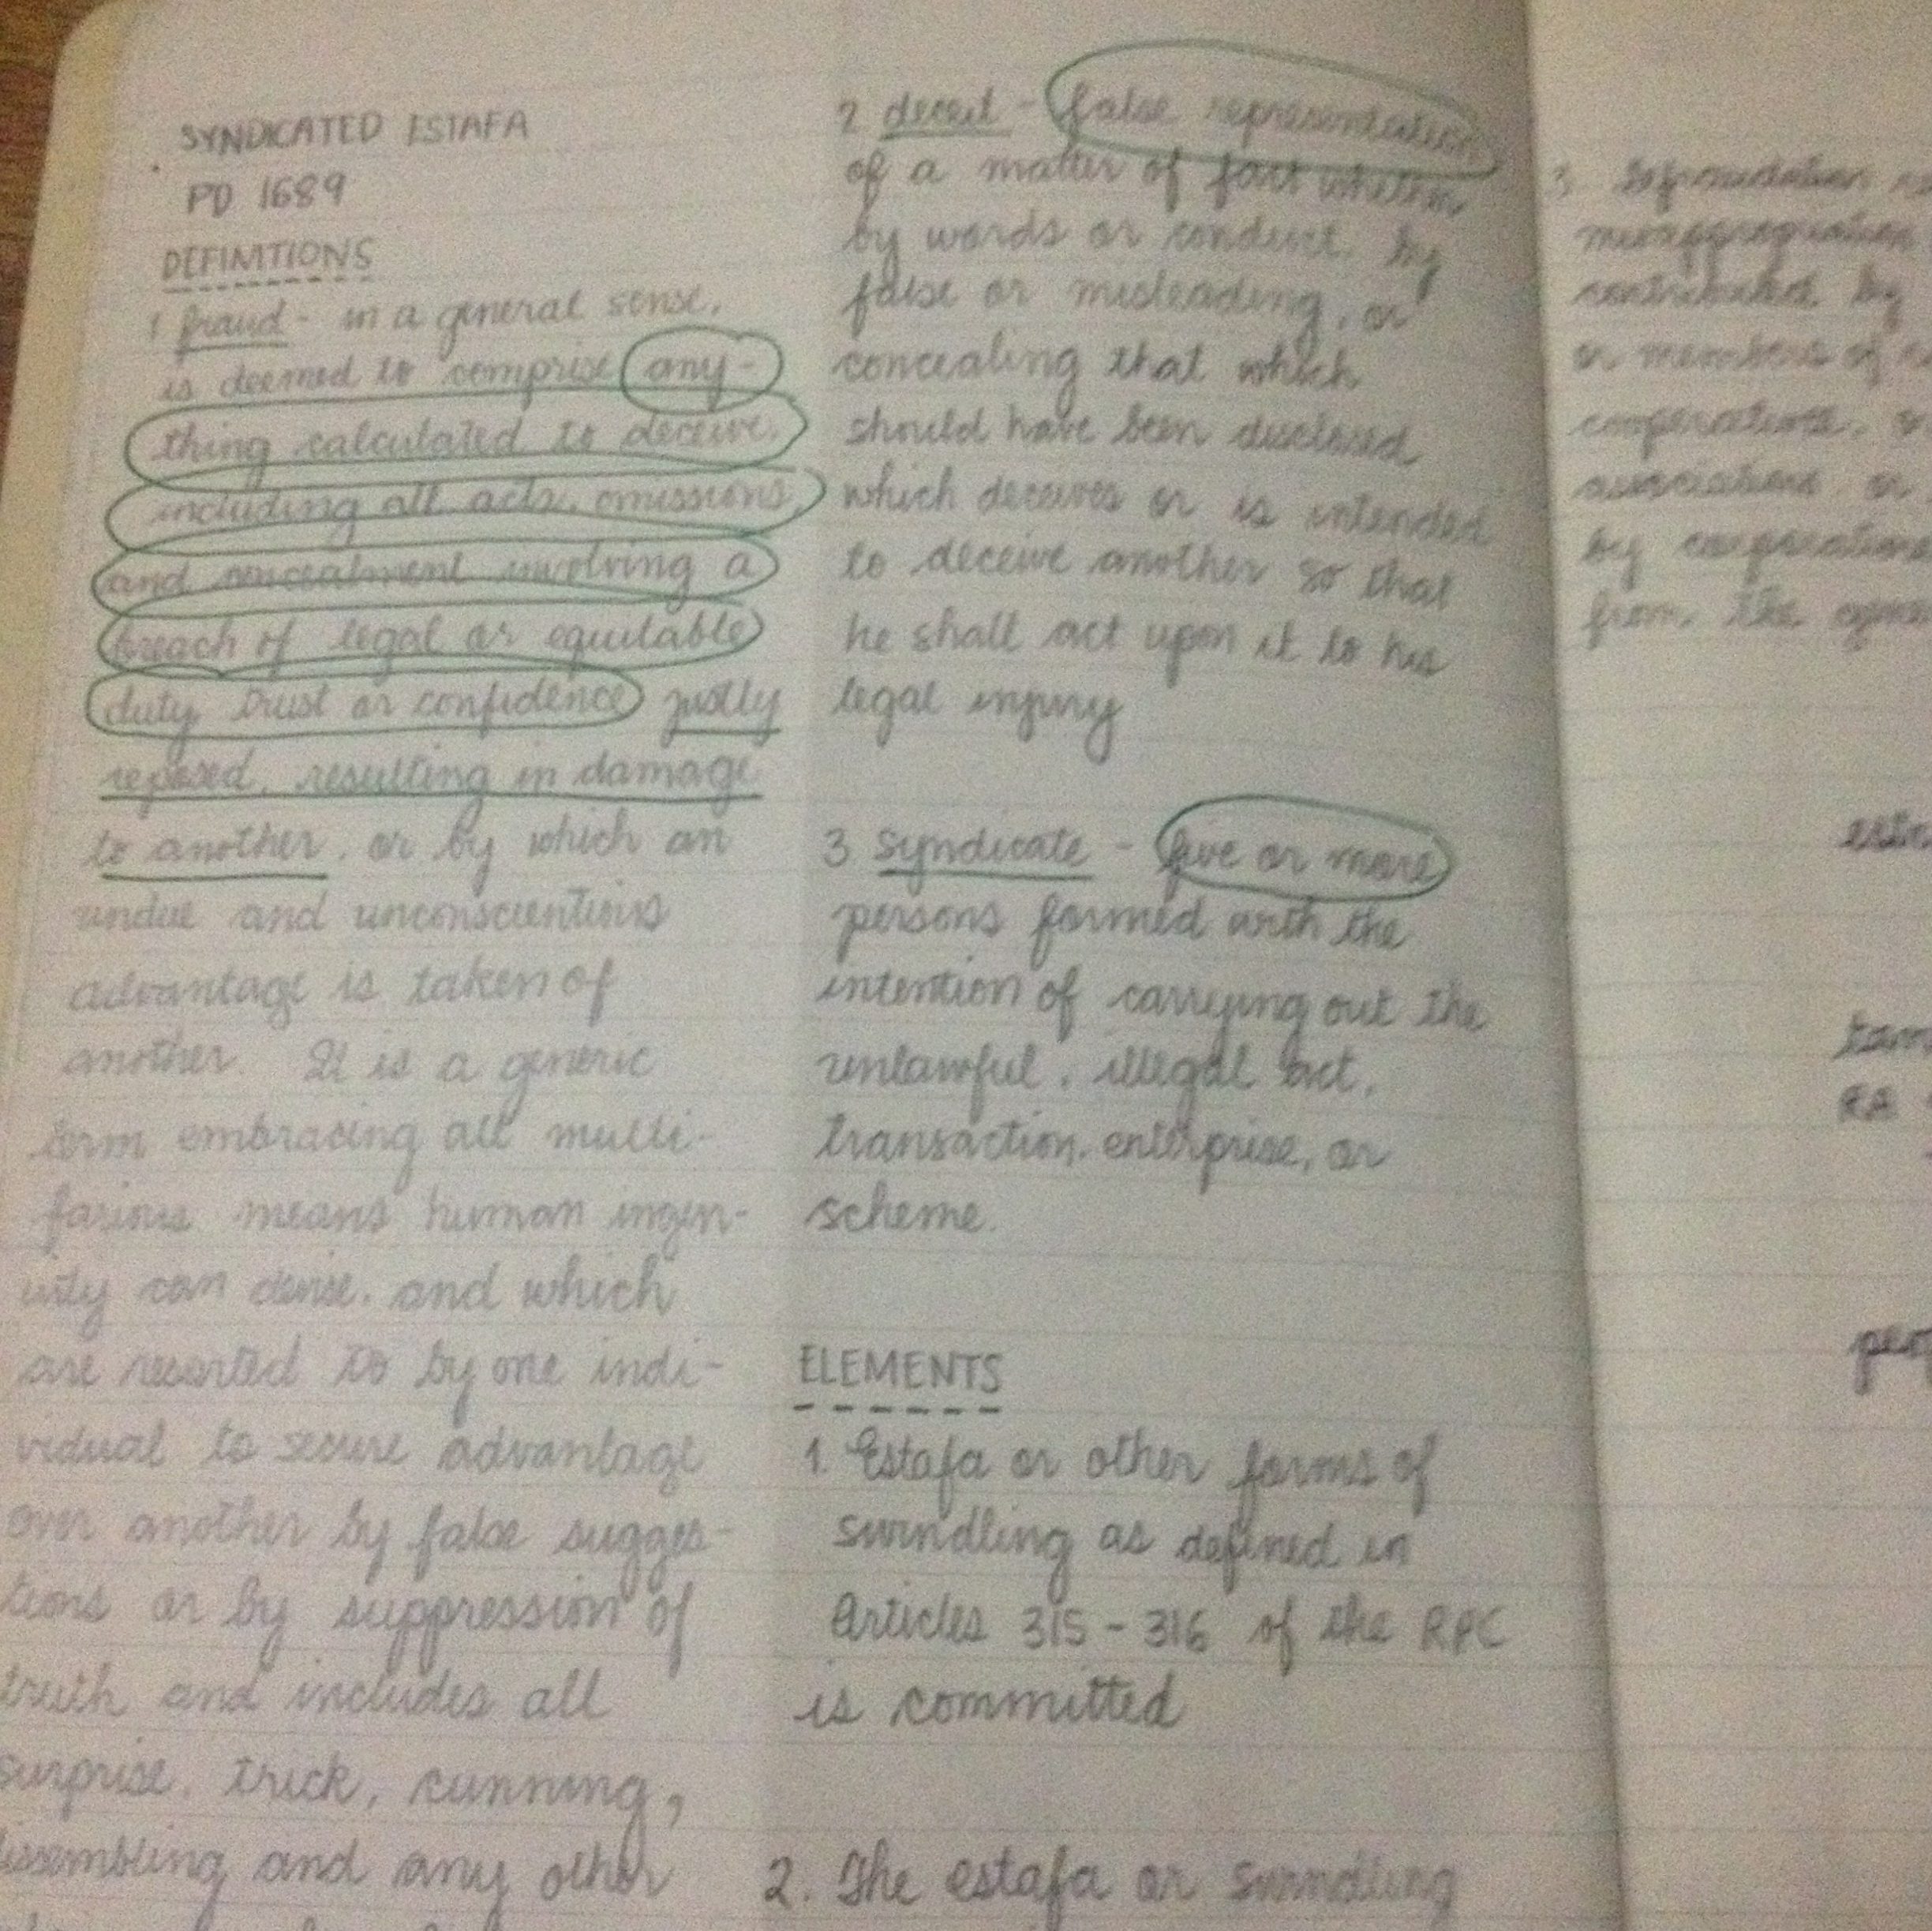 SYNDICATED ESTAFA
PD 1689
DEFINITIONS
1 fraud - in a general sense,
is deemed to comprise any-
thing calculated to deceive,
including all acts, omissions,
and concealment involving a
breach of legal or equitable
duty, trust or confidence justly
reposed, resulting in damage
to another, or by which an
undue and unconscientious
advantage is taken of
another. It is a generic
term embracing all multi-
farious means human ingen-
uity can devise, and which
are resorted to by one indi-
vidual to secure advantage
over another by false sugges-
tions or by suppression of
truth and includes all
surprise, trick, cunning,
dissembling and any other
2 deceit - false representation
of a matter of fact whether
by words or conduct, by
false or misleading, or
concealing that which
should have been disclosed
which deceives or is intended
to deceive another so that
he shall act upon it to his
legal injury
3 syndicate - five or more
persons formed with the
intention of carrying out the
unlawful, illegal act,
transaction, enterprise, or
scheme.
ELEMENTS
1. Estafa or other forms of
swindling as defined in
Articles 315 - 316 of the RPC
is committed
2. The estafa or swindling
3.
misappropriation
contributed by
or members of
cooperatives,
associations or
by corporations
from the
RA